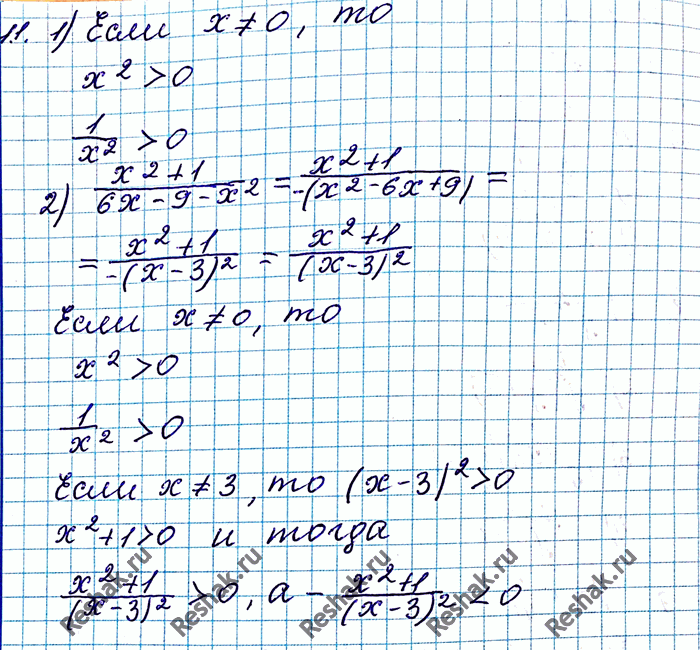 11. 1) Если x ≠ 0, то
x² > 0
1/x² > 0
2) (x²+1)/(6x-9-x²) = (x²+1)/(-(x²-6x+9)) =
= (x²+1)/(-(x-3)²) = (x²+1)/((x-3)²)
Если x ≠ 0, то
x² > 0
1/x² > 0
Если x ≠ 3, то (x-3)² > 0
x²+1 > 0 и тогда
(x²+1)/((x-3)²) > 0, а - (x²+1)/((x-3)²) < 0
Reshak.ru
Reshak.ru
Reshak.ru
Reshak.ru
Reshak.ru